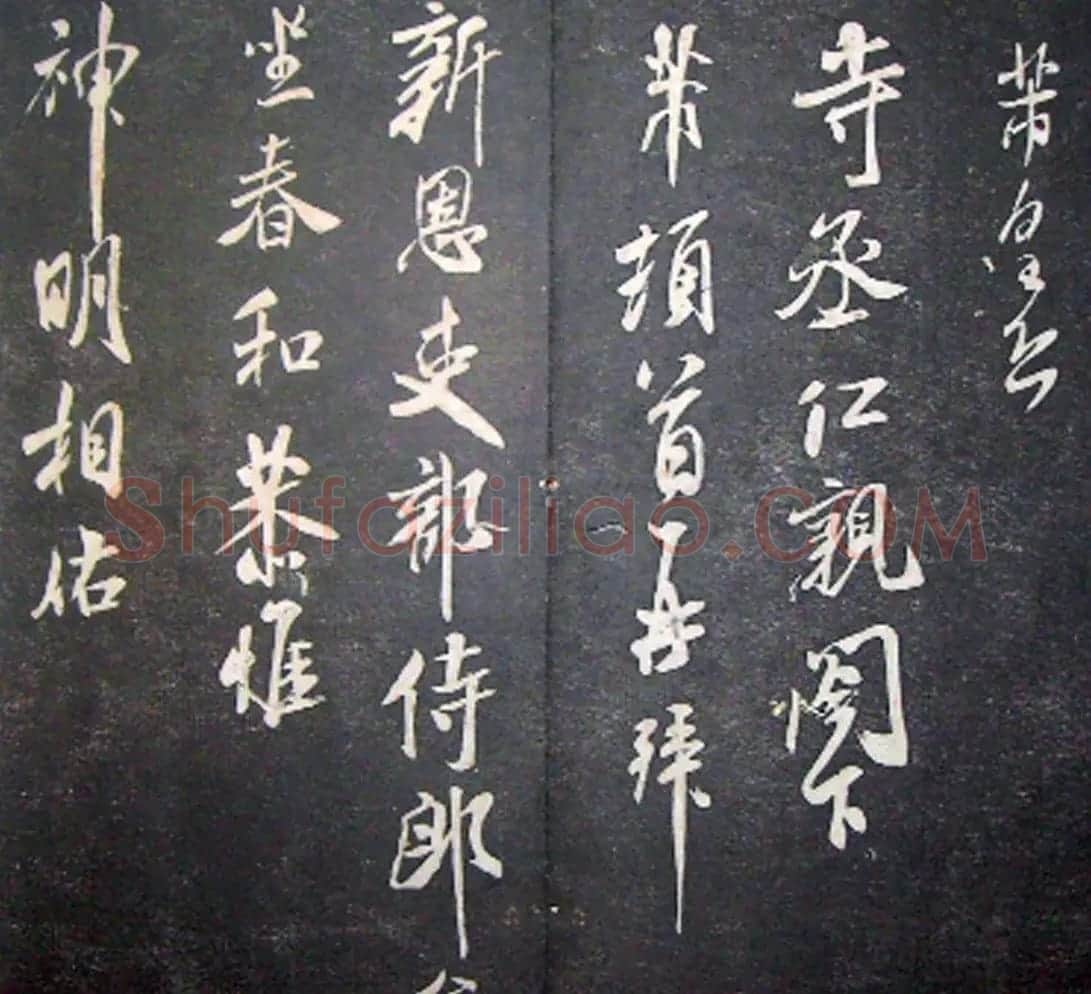 芾皇恐
寺丞仁親閣下
芾頓首再拜
新恩吏部侍郎
坐春和恭惟
神明相佑
Shufaziliao.COM